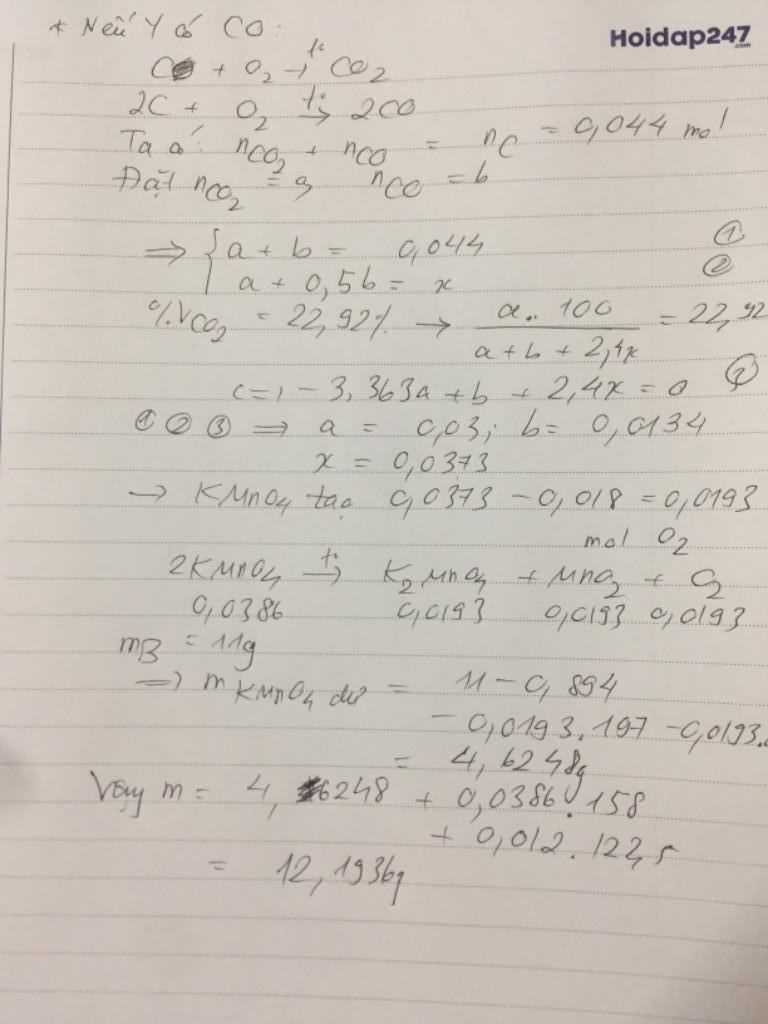 * Nếu Y có CO:
Hoidap247
.com
C + O₂ →t° CO₂
2C + O₂ →t° 2CO
Ta có: nCO₂ + nCO = nC = 0,044 mol
Đặt nCO₂ = a, nCO = b
⇒ { a + b = 0,044 ①
a + 0,5b = x ②
%VCO₂ = 22,92% → a. 100 / a + b + 2,4x = 22,92
(=) - 3,363a + b + 2,4x = 0 ③
① ② ③ ⇒ a = 0,03; b = 0,0134
x = 0,0373
→ KMnO₄ tạo 0,0373 - 0,018 = 0,0193
mol O₂
2KMnO₄ →t° K₂MnO₄ + MnO₂ + O₂
0,0386 0,0193 0,0193 0,0193
mB = 11g
⇒ mKMnO₄ dư = 11 - 0,894
- 0,0193.197 - 0,0193.
= 4,6248g
Vậy m = 4,6248 + 0,0386.158
+ 0,012.122,5
= 12,1936g